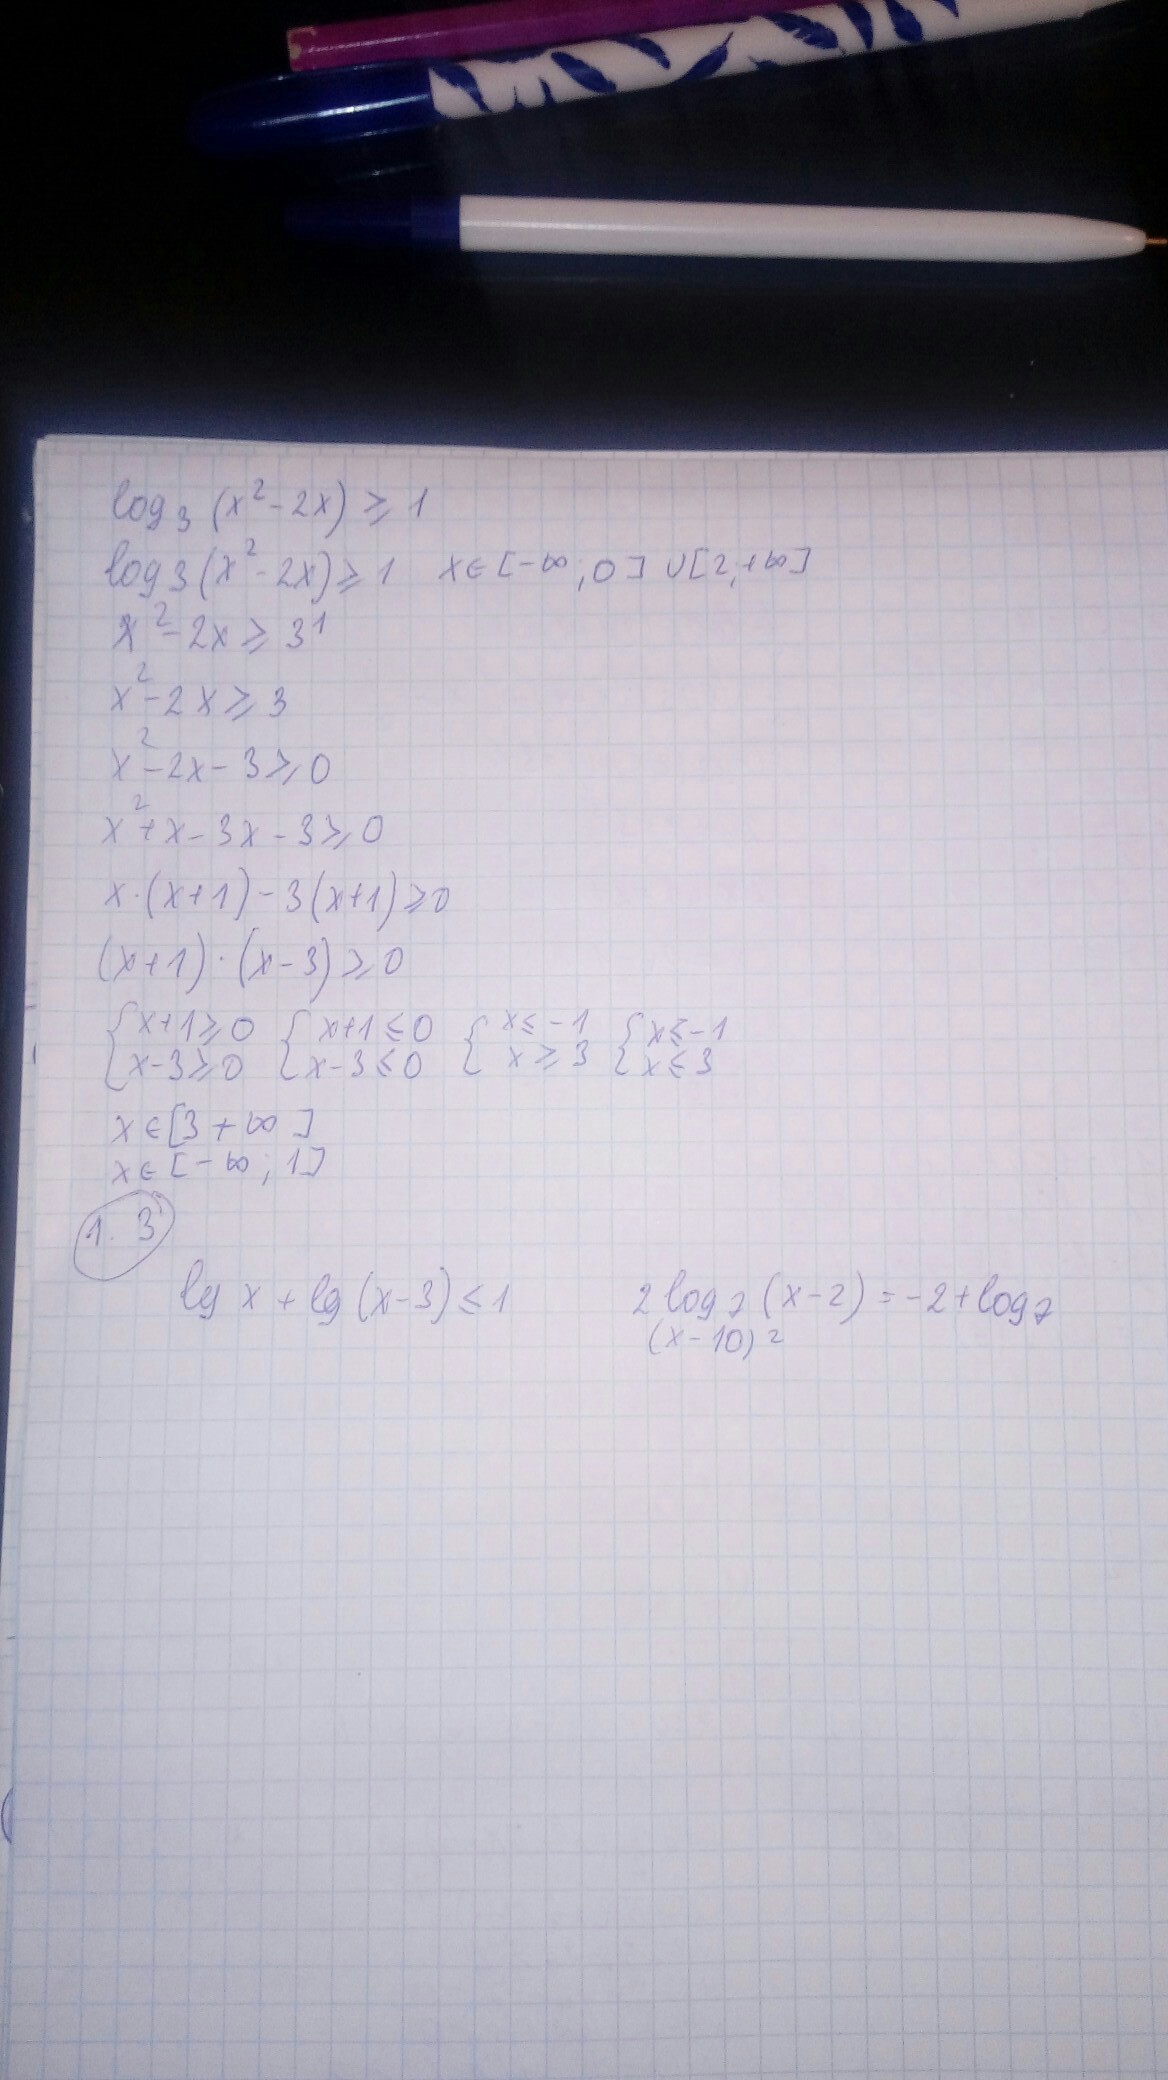 log₃ (x² - 2x) ≥ 1
log₃ (x² - 2x) ≥ 1 x ∈ [-∞; 0] ∪ [2; +∞]
x² - 2x ≥ 3¹
x² - 2x ≥ 3
x² - 2x - 3 ≥ 0
x² + x - 3x - 3 ≥ 0
x · (x+1) - 3(x+1) ≥ 0
(x+1) · (x-3) ≥ 0
{ x+1 ≥ 0 { x+1 ≤ 0 { x ≤ -1 { x ≤ -1
x-3 ≥ 0 x-3 ≤ 0 x ≥ 3 x ≤ 3
x ∈ [3 + ∞]
x ∈ [-∞; 1]
1. 3
lg x + lg (x-3) ≤ 1 2 log₂ (x-2) = -2 + log₂
(x-10)²